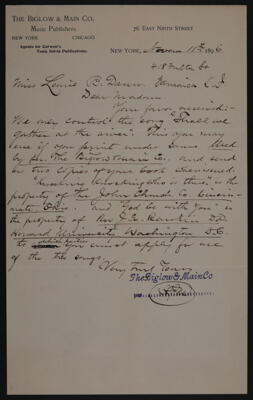 THE BIGLOW & MAIN CO.
Music Publishers
NEW YORK CHICAGO
Agents for Curwen's
Tonic Sol-fa Publications.
76 EAST NINTH STREET
NEW YORK, 11th 1896
418 Fulton St
Miss Louis B. Dunn. Jamaica L. I.
Dear Madam
Your favor received.
We only control the song "Shall we
gather at the river". This you may
use if you print under same Used
by per. The Biglow & Main Co. and send
us two copies of your book when issued.
"Knocking Knocking who is there" is the
property of the John Church Co. Cincin-
nati, Ohio. and "God be with you" is
the property of Rev J. E. Rankin D.D.
Howard University Washington D.C.
to you must apply for use
of the songs.
Very Truly Yours
The Biglow & Main Co.